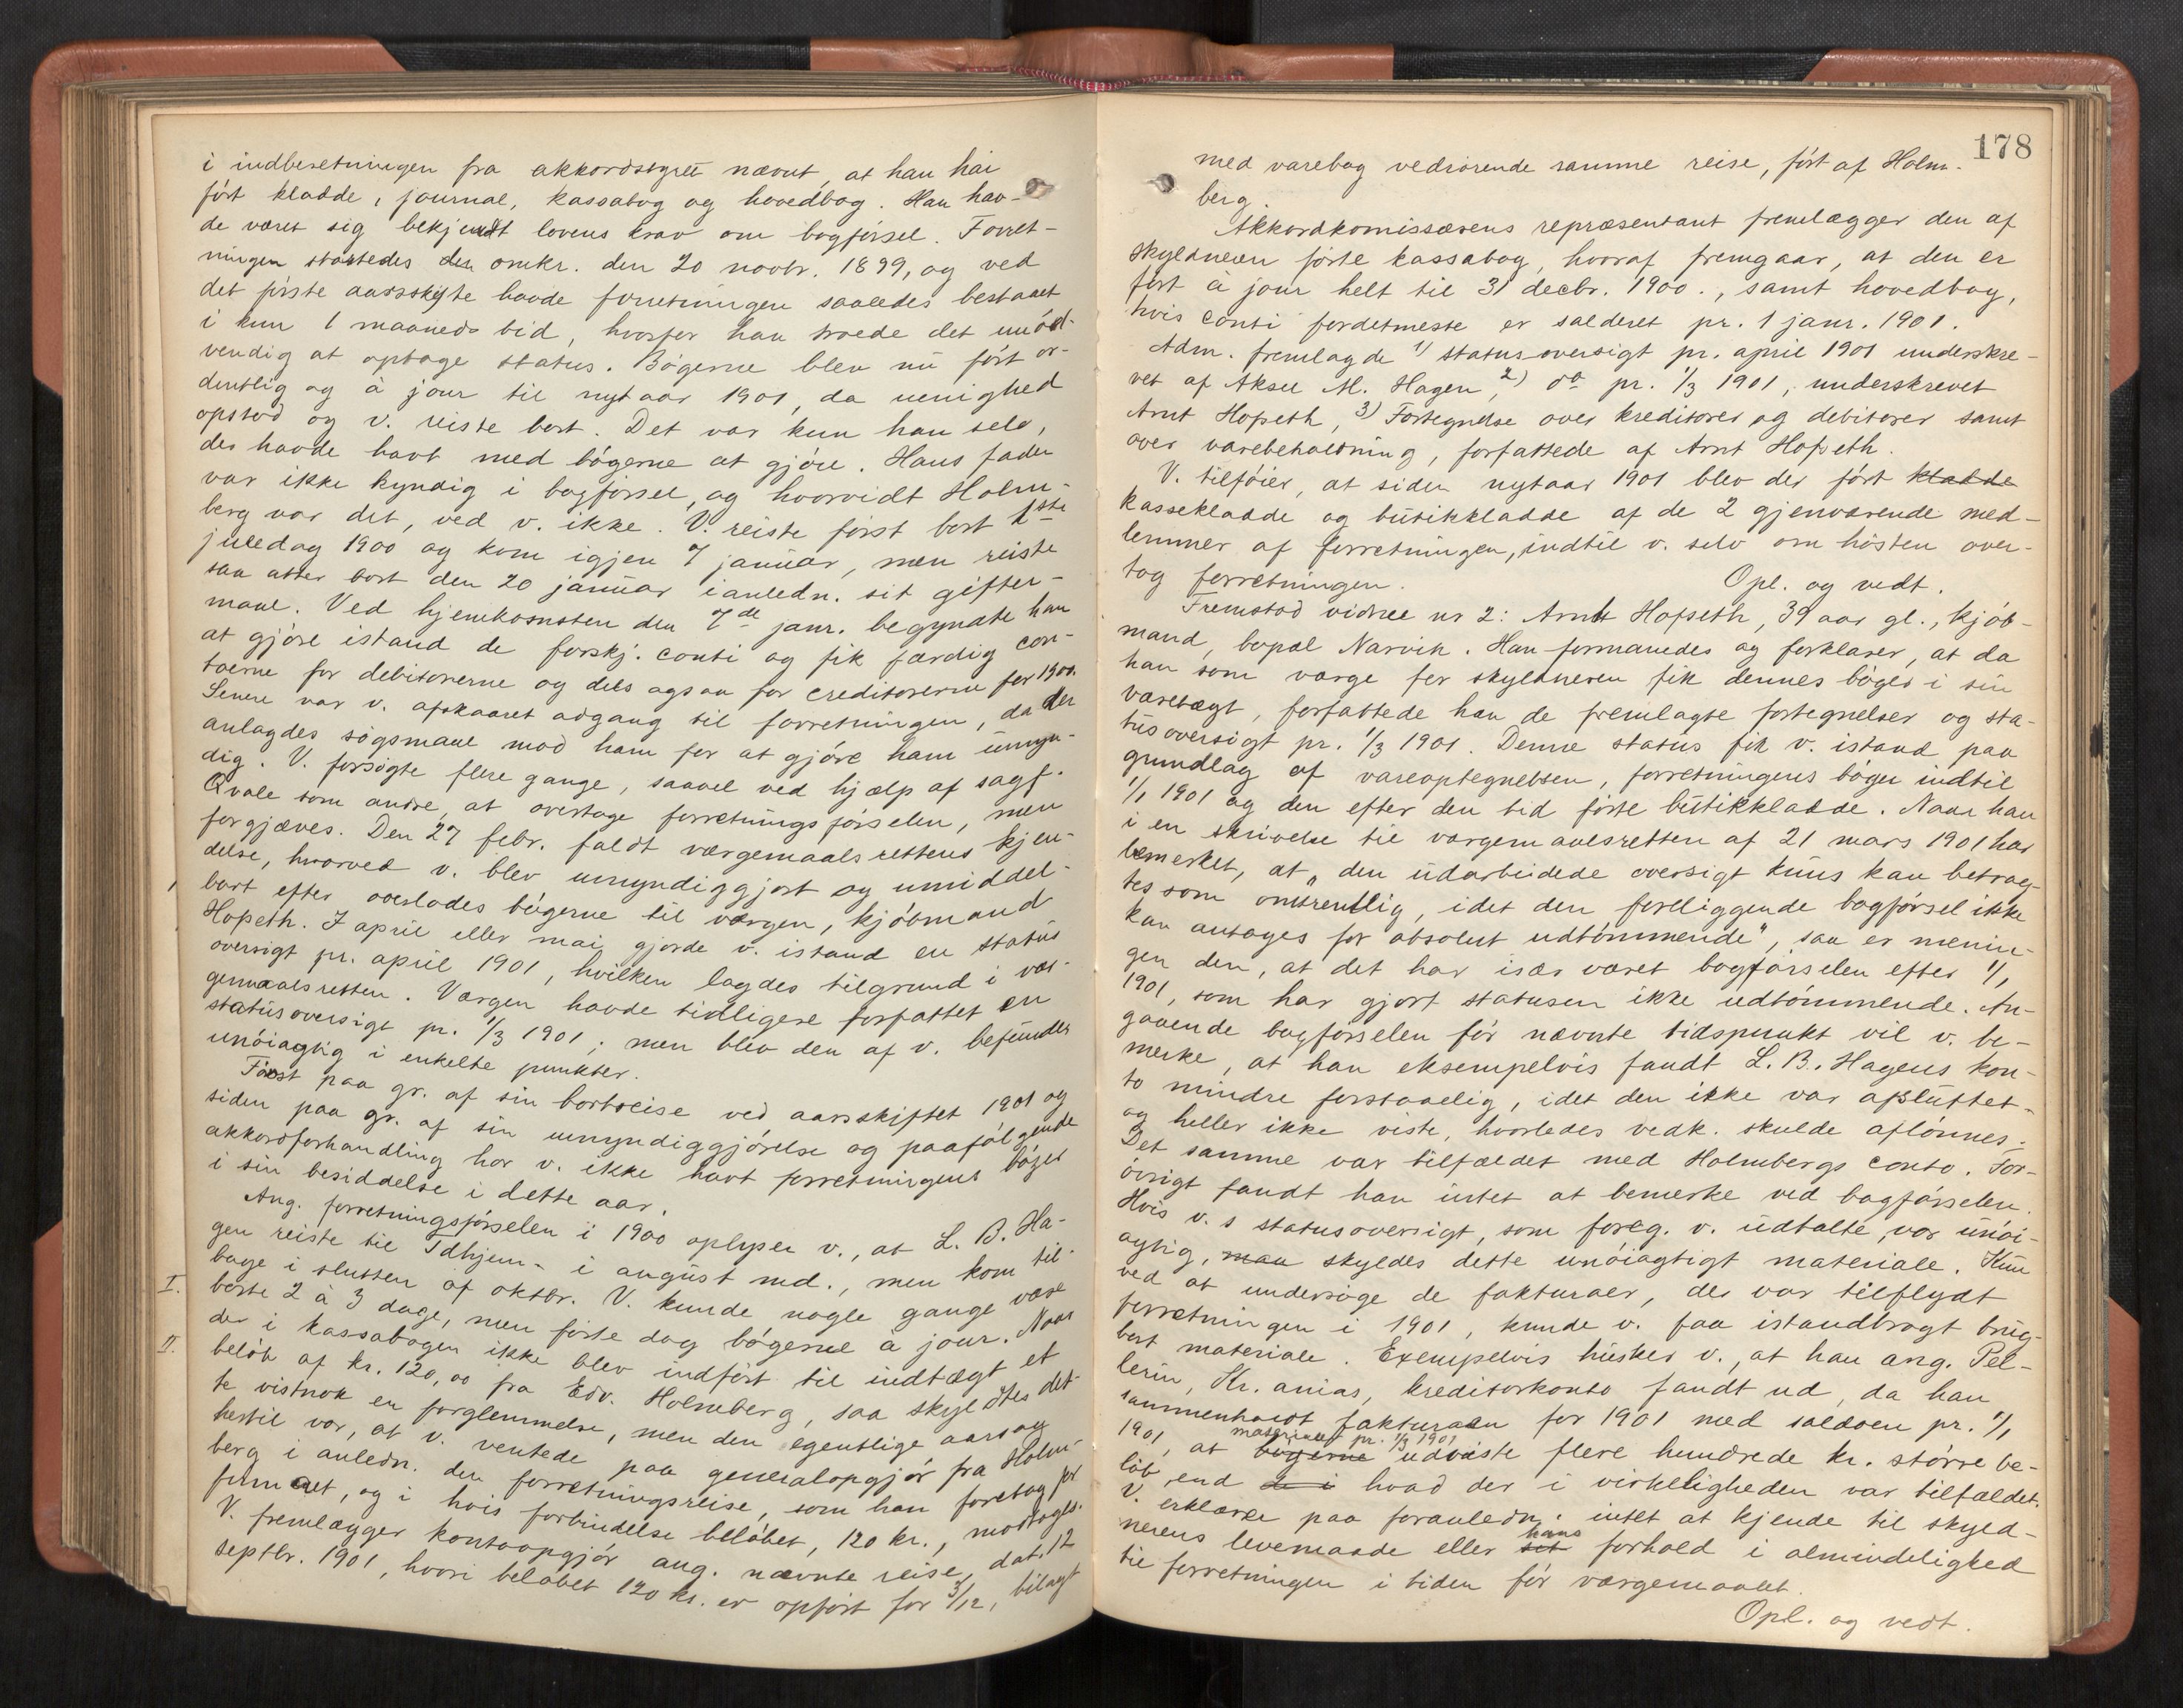 i indberetningen fra akkordstyret nævnt, at han har
ført kladde, journal, kassabog og hovedbog. Han hav-
de været sig bekjendt lovens krav om bogførsel. Forret-
ningen startedes den omkr. den 20 novbr. 1899, og ved
det første aarsskifte havde forretningen saaledes bestaaet
i kun 1 maaneds tid, hvorfor han troede det unød-
vendig at optage status. Bøgerne blev nu ført or-
dentlig og à jour til nytaar 1901, da uenighed
opstod og v. reiste bort. Det var kun han selv,
der havde havt med bøgerne at gjøre. Hans fader
var ikke kyndig i bogførsel, og hvorvidt Holm-
berg var det, ved v. ikke. V. reiste først bort 1ste
juledag 1900 og kom igjen 7 januar, men reiste
saa atter bort den 20 januar i anledn. sit gifter-
maal. Ved hjemkomsten den 7de janr. begyndte han
at gjøre istand de forskj. conti og fik færdig con-
toerne for debitorerne og dels ogsaa for creditorerne for 1900.
Senere var v. afskaaret adgang til forretningen, da der
anlagdes søgsmaal mod ham for at gjøre ham umyn-
dig. V. forsøgte flere gange, saavel ved hjælp af sagf.
Qvale som andre, at overtage forretningsførselen, men
forgjæves. Den 27 febr. faldt værgemaalsrettens kjen-
delse, hvorved v. blev umyndiggjort og umiddel-
bart efter overlodes bøgerne til værgen, kjøbmand
Hopseth. I april eller mai gjorde v. istand en status
oversigt pr. april 1901, hvilken lagdes tilgrund i vær-
gemaalsretten. Værgen havde tidligere forfattet en
statusoversigt pr. 1/3 1901; men blev den af v. befundet
unøiagtig i enkelte punkter.
Først paa gr. af sin bortreise ved aarsskiftet 1901 og
siden paa gr. af sin umyndiggjørelse og paafølgende
akkordforhandling har v. ikke havt forretningens bøger
i sin besiddelse i dette aar.
Ang. forretningsførselen i 1900 oplyser v., at L. B. Ha-
gen reiste til Tdhjem i august md., men kom til-
bage i slutten af oktbr. V. kunde nogle gange være
I. borte 2 à 3 dage, men førte dog bøgerne à jour. Naar
der i kassabogen ikke blev indført til indtægt et
II. beløb af kr. 120,00 fra Edv. Holmberg, saa skyldtes det-
te vistnok en forglemmelse, men den egentlige aarsag
hertil var, at v. ventede paa generalopgjør fra Holm-
berg i anledn. den forretningsreise, som han foretog for
firmaet, og i hvis forbindelse beløbet, 120 kr., modtoges.
V. fremlægger kontoopgjør ang. nævnte reise, dat. 12
septbr. 1901, hvori beløbet 120 kr. er opført for 3/12, bilagt
178
med varebog vedrørende samme reise, ført af Holm-
berg.
Akkordkomissærens repræsentant fremlægger den af
skyldneren førte kassabog, hvoraf fremgaar, at den er
ført à jour helt til 31 decbr. 1900., samt hovedbog,
hvis conti fordetmeste er salderet pr. 1 janr. 1901.
Adm. fremlagde 1) statusoversigt pr. april 1901 underskre-
vet af Aksel M. Hagen, 2) do pr. 1/3 1901, underskrevet
Arnt Hopseth, 3) Fortegnelse over kreditorer og debitorer samt
over varebeholdning, forfattede af Arnt Hofseth.
V. tilføier, at siden nytaar 1901 blev der ført kladde
kassekladde og butikkladde af de 2 gjenværende med-
lemmer af forretningen, indtil v. selv om høsten over-
tog forretningen. Opl. og vedt.
Fremstod vidne nr 2: Arnt Hofseth, 39 aar gl., kjøb-
mand, bopæl Narvik. Han formanedes og forklarer, at da
han som værge for skyldneren fik dennes bøger i sin
varetægt, forfattede han de fremlagte fortegnelser og sta-
tusoversigt pr. 1/3 1901. Denne status fik v. istand paa
grundlag af vareoptegnelsen, forretningens bøger indtil
1/1 1901 og den efter den tid førte butikkladde. Naar han
i en skrivelse til værgemaalsretten af 21 mars 1901 har
bemerket, at "den udarbeidede oversigt kuns kan betrag-
tes som omtrentlig, idet den foreliggende bogførsel ikke
kan antages for absolut udtømmende", saa er menin-
gen den, at det har især været bogførselen efter 1/1
1901, som har gjort statusen ikke udtømmende. An-
gaaende bogførselen før nævnte tidspunkt vil v. be-
merke, at han eksempelvis fandt L. B. Hagens kon-
to mindre forstaaelig, idet den ikke var afsluttet
og heller ikke viste, hvorledes vedk. skulde aflønnes.
Det samme var tilfældet med Holmbergs conto. For-
øvrigt fandt han intet at bemerke ved bogførselen.
Hvis v.s statusoversigt, som foreg. v. udtalte, var unøi-
agtig, maa skyldes dette unøiagtigt materiale. Kun
ved at undersøge de fakturaer, der var tilflydt
forretningen i 1901, kunde v. faa istandbragt brug-
bart materiale. Exempelvis husker v., at han ang. Pel-
lerin, Kr. anias, kreditorkonto fandt ud, da han
sammenholdt fakturaen for 1901 med saldoen pr. 1/1
1901, at bøgerne materialet pr. 1/3 1901 udviste flere hundrede kr. større be-
løb end de i hvad der i virkeligheden var tilfældet.
V. erklærer paa foranledn. intet at kjende til skyld-
nerens levemaade eller sit hans forhold i almindelighed
til forretningen i tiden før værgemaalet.
Opl. og vedt.